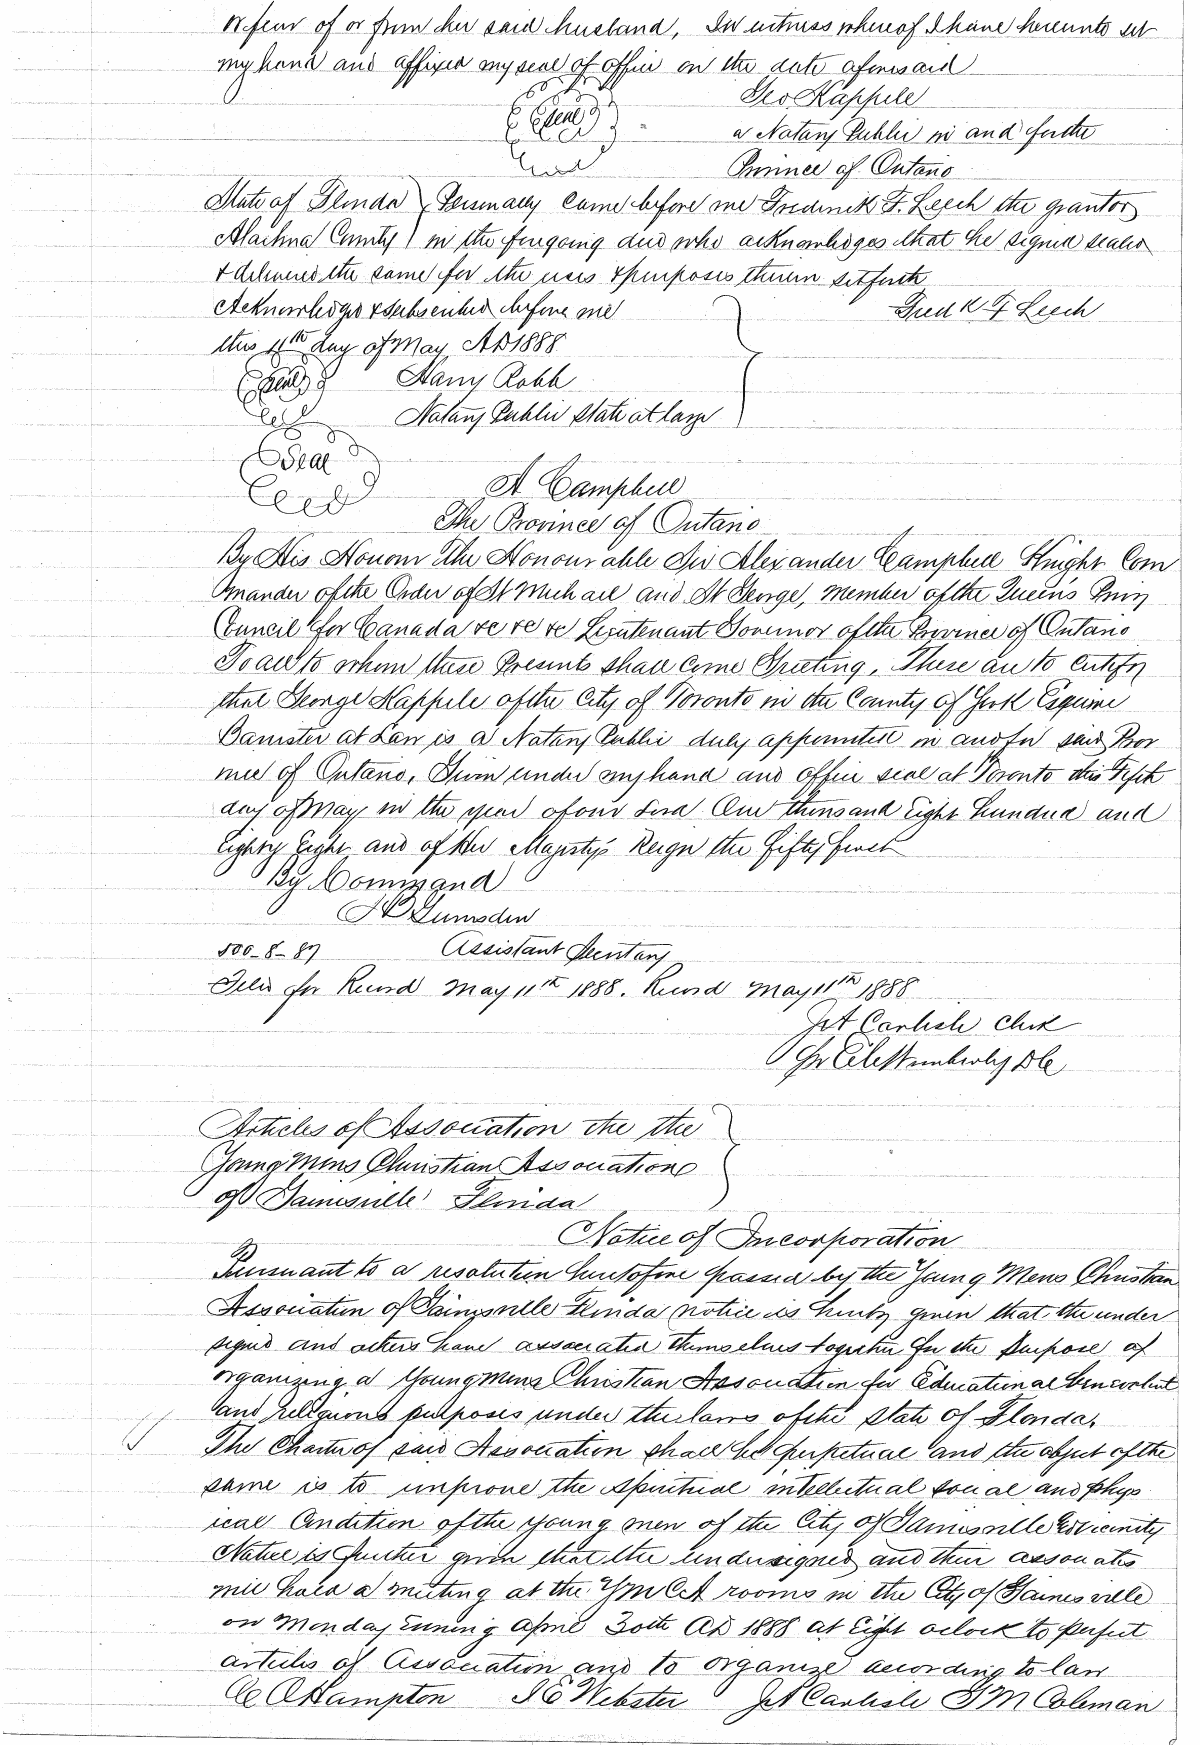 or fear of or from her said husband, In witness whereof I have hereunto set
my hand and affixed my seal of office on the date aforesaid
Geo Kappele
Seal
a Notary Public in and for the
Province of Ontario
State of Florida } Personally came before me Frederick F. Leech the grantor
Alachua County } in the foregoing deed who acknowledges that he signed sealed
& delivered the same for the uses & purposes therein set forth
Acknowledged & subscribed before me
Fredk F Leech
this 11th day of May AD 1888
Seal
Harry Robb
Notary Public State at large
Seal
A Campbell
The Province of Ontario
By His Honour The Honourable Sir Alexander Campbell Knight Com
mander of the Order of St Michael and St George, Member of the Queens Privy
Council for Canada &c &c &c Lieutenant Governor of the Province of Ontario
To all to whom these Presents shall come Greeting, These are to certify
that George Kappele of the City of Toronto in the County of York Esquire
Barrister at Law is a Notary Public duly appointed in and for said Prov
ince of Ontario, Given under my hand and office seal at Toronto this Fifth
day of May in the year of our Lord One thousand Eight hundred and
Eighty Eight and of Her Majesty's Reign the fifty first
By Command
Lumsden
500-8-87
Assistant Secretary
Filed for Record May 11th 1888. Record May 11th 1888
J A Carlisle Clerk
DC
Articles of Association the the
Young Mens Christian Association
of Gainesville Florida
Notice of Incorporation
Pursuant to a resolution heretofore passed by the Young Mens Christian
Association of Gainesville Florida notice is hereby given that the under
signed and others have associated themselves together for the purpose of
organizing a Young Mens Christian Association for Educational benevolent
and religious purposes under the laws of the State of Florida.
The Charter of said Association shall be perpetual and the object of the
same is to improve the spiritual intellectual social and phys
ical Condition of the young men of the City of Gainesville & vicinity
Notice is further given that the undersigned and their associates
will hold a meeting at the YMCA rooms in the City of Gainesville
on Monday Evening April 30th AD 1888 at Eight oclock to perfect
articles of Association and to organize according to law
C A Hampton J E Webster J A Carlisle T M Coleman